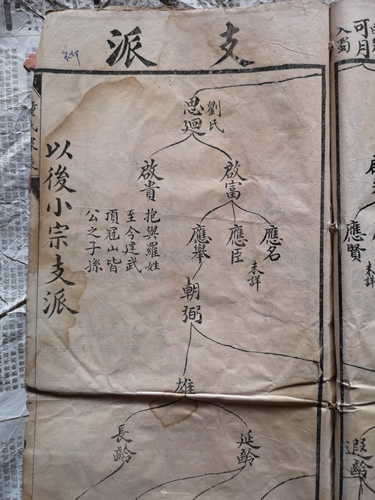 支派
劉氏
思廻
啟富
啟貴
抱與羅姓
至今建武
頂冠山皆
公之子孫
應名
未詳
應臣
應舉
朝弼
雄
延齡
長齡
以後小宗支派
可月
入蜀
應賢
未詳
遐齡